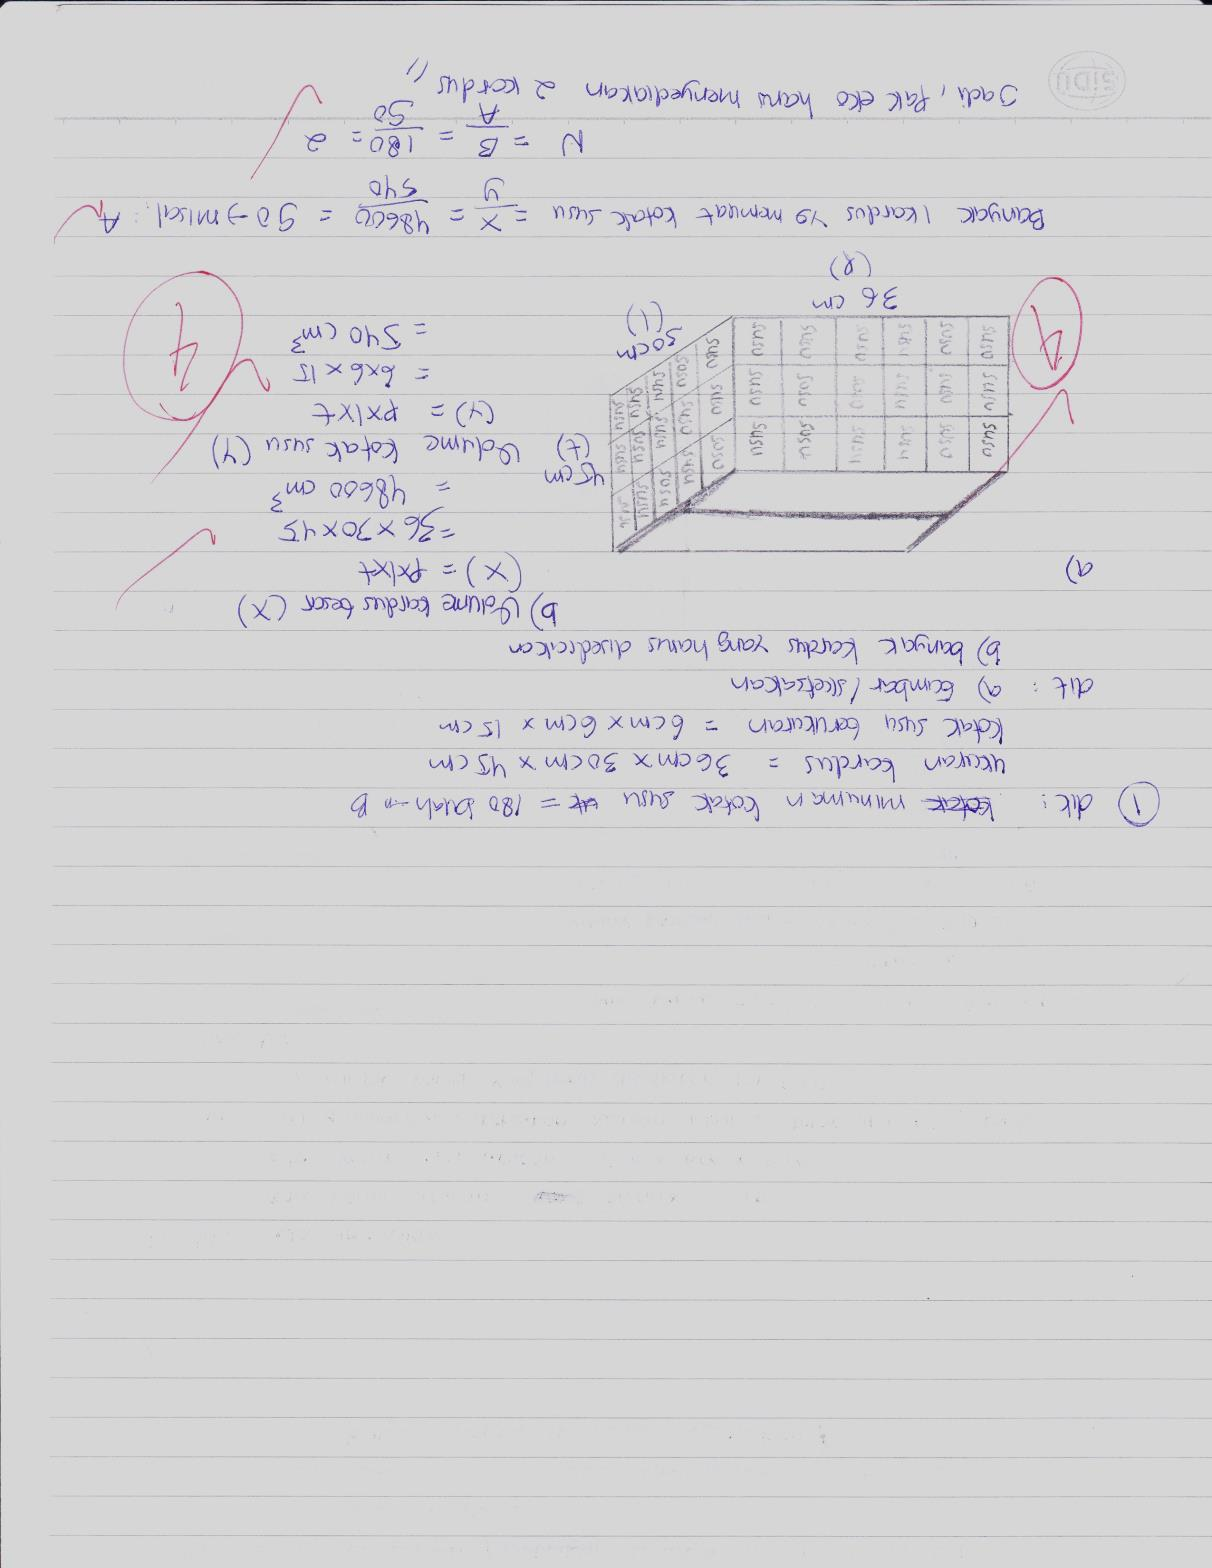 ① dik: minuman kotak susu = 180 buah → B
ukuran kardus = 36cm x 30cm x 45cm
kotak susu berukuran = 6cm x 6cm x 15cm
dit: a) Gambar/sketsakan
b) banyak kardus yang harus disediakan
a)
45cm
(t)
30cm
(l)
36 cm
(p)
susu susu susu susu susu susu
susu susu susu susu susu susu
susu susu susu susu susu susu
b) Volume kardus besar (X)
(X) = pxlxt
= 36 x 30 x 45
= 48600 cm³
Volume kotak susu (Y)
(Y) = pxlxt
= 6x6 x 15
= 540 cm³
4
4
Banyak 1 kardus yg memuat kotak susu = X/Y = 48600/540 = 90 → misal: A
N = B/A = 180/90 = 2
Jadi, Pak eko harus menyediakan 2 kardus //
SIDU